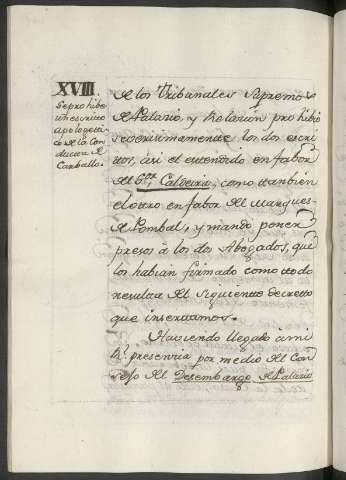 XVIII
Se prohibe
n los escritos
apologeti
cos de la Con
ducta de
Carballo.
de los Tribunales Supremos
de Palacio, y Relacion prohibió
severisimamente los dos escri
ttos, asi el extendido en fabor
del Cavr. Caldeira, como ttanbien
el otro en fabor del Marques
de Pombal, y mandó poner
presos à los dos Abogados, que
los habian firmado como ttodo
resulta del siguiente decretto
que insertamos.
Haviendo llegado a mi
Rl. presencia por medio del Con
sejo del Desembargo de Palacio